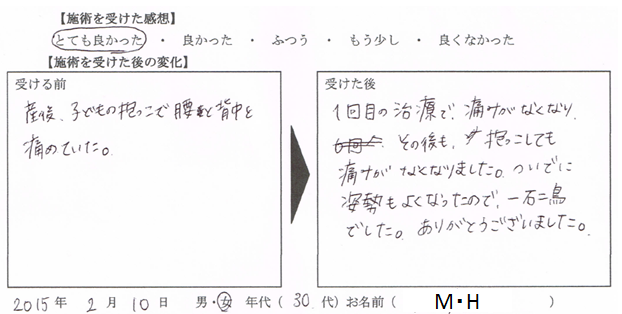 【施術を受けた感想】
とても良かった ・ 良かった ・ ふつう ・ もう少し ・ 良くなかった
【施術を受けた後の変化】
受ける前
産後、子どもの抱っこで腰と背中を
痛めていた。
受けた後
1回目の治療で、痛みがなくなり、
その後も、抱っこしても
痛みがなくなりました。ついでに
姿勢もよくなったので、一石二鳥
でした。ありがとうございました。
2015年 2月10日 男・女 年代（30代）お名前（ M・H ）